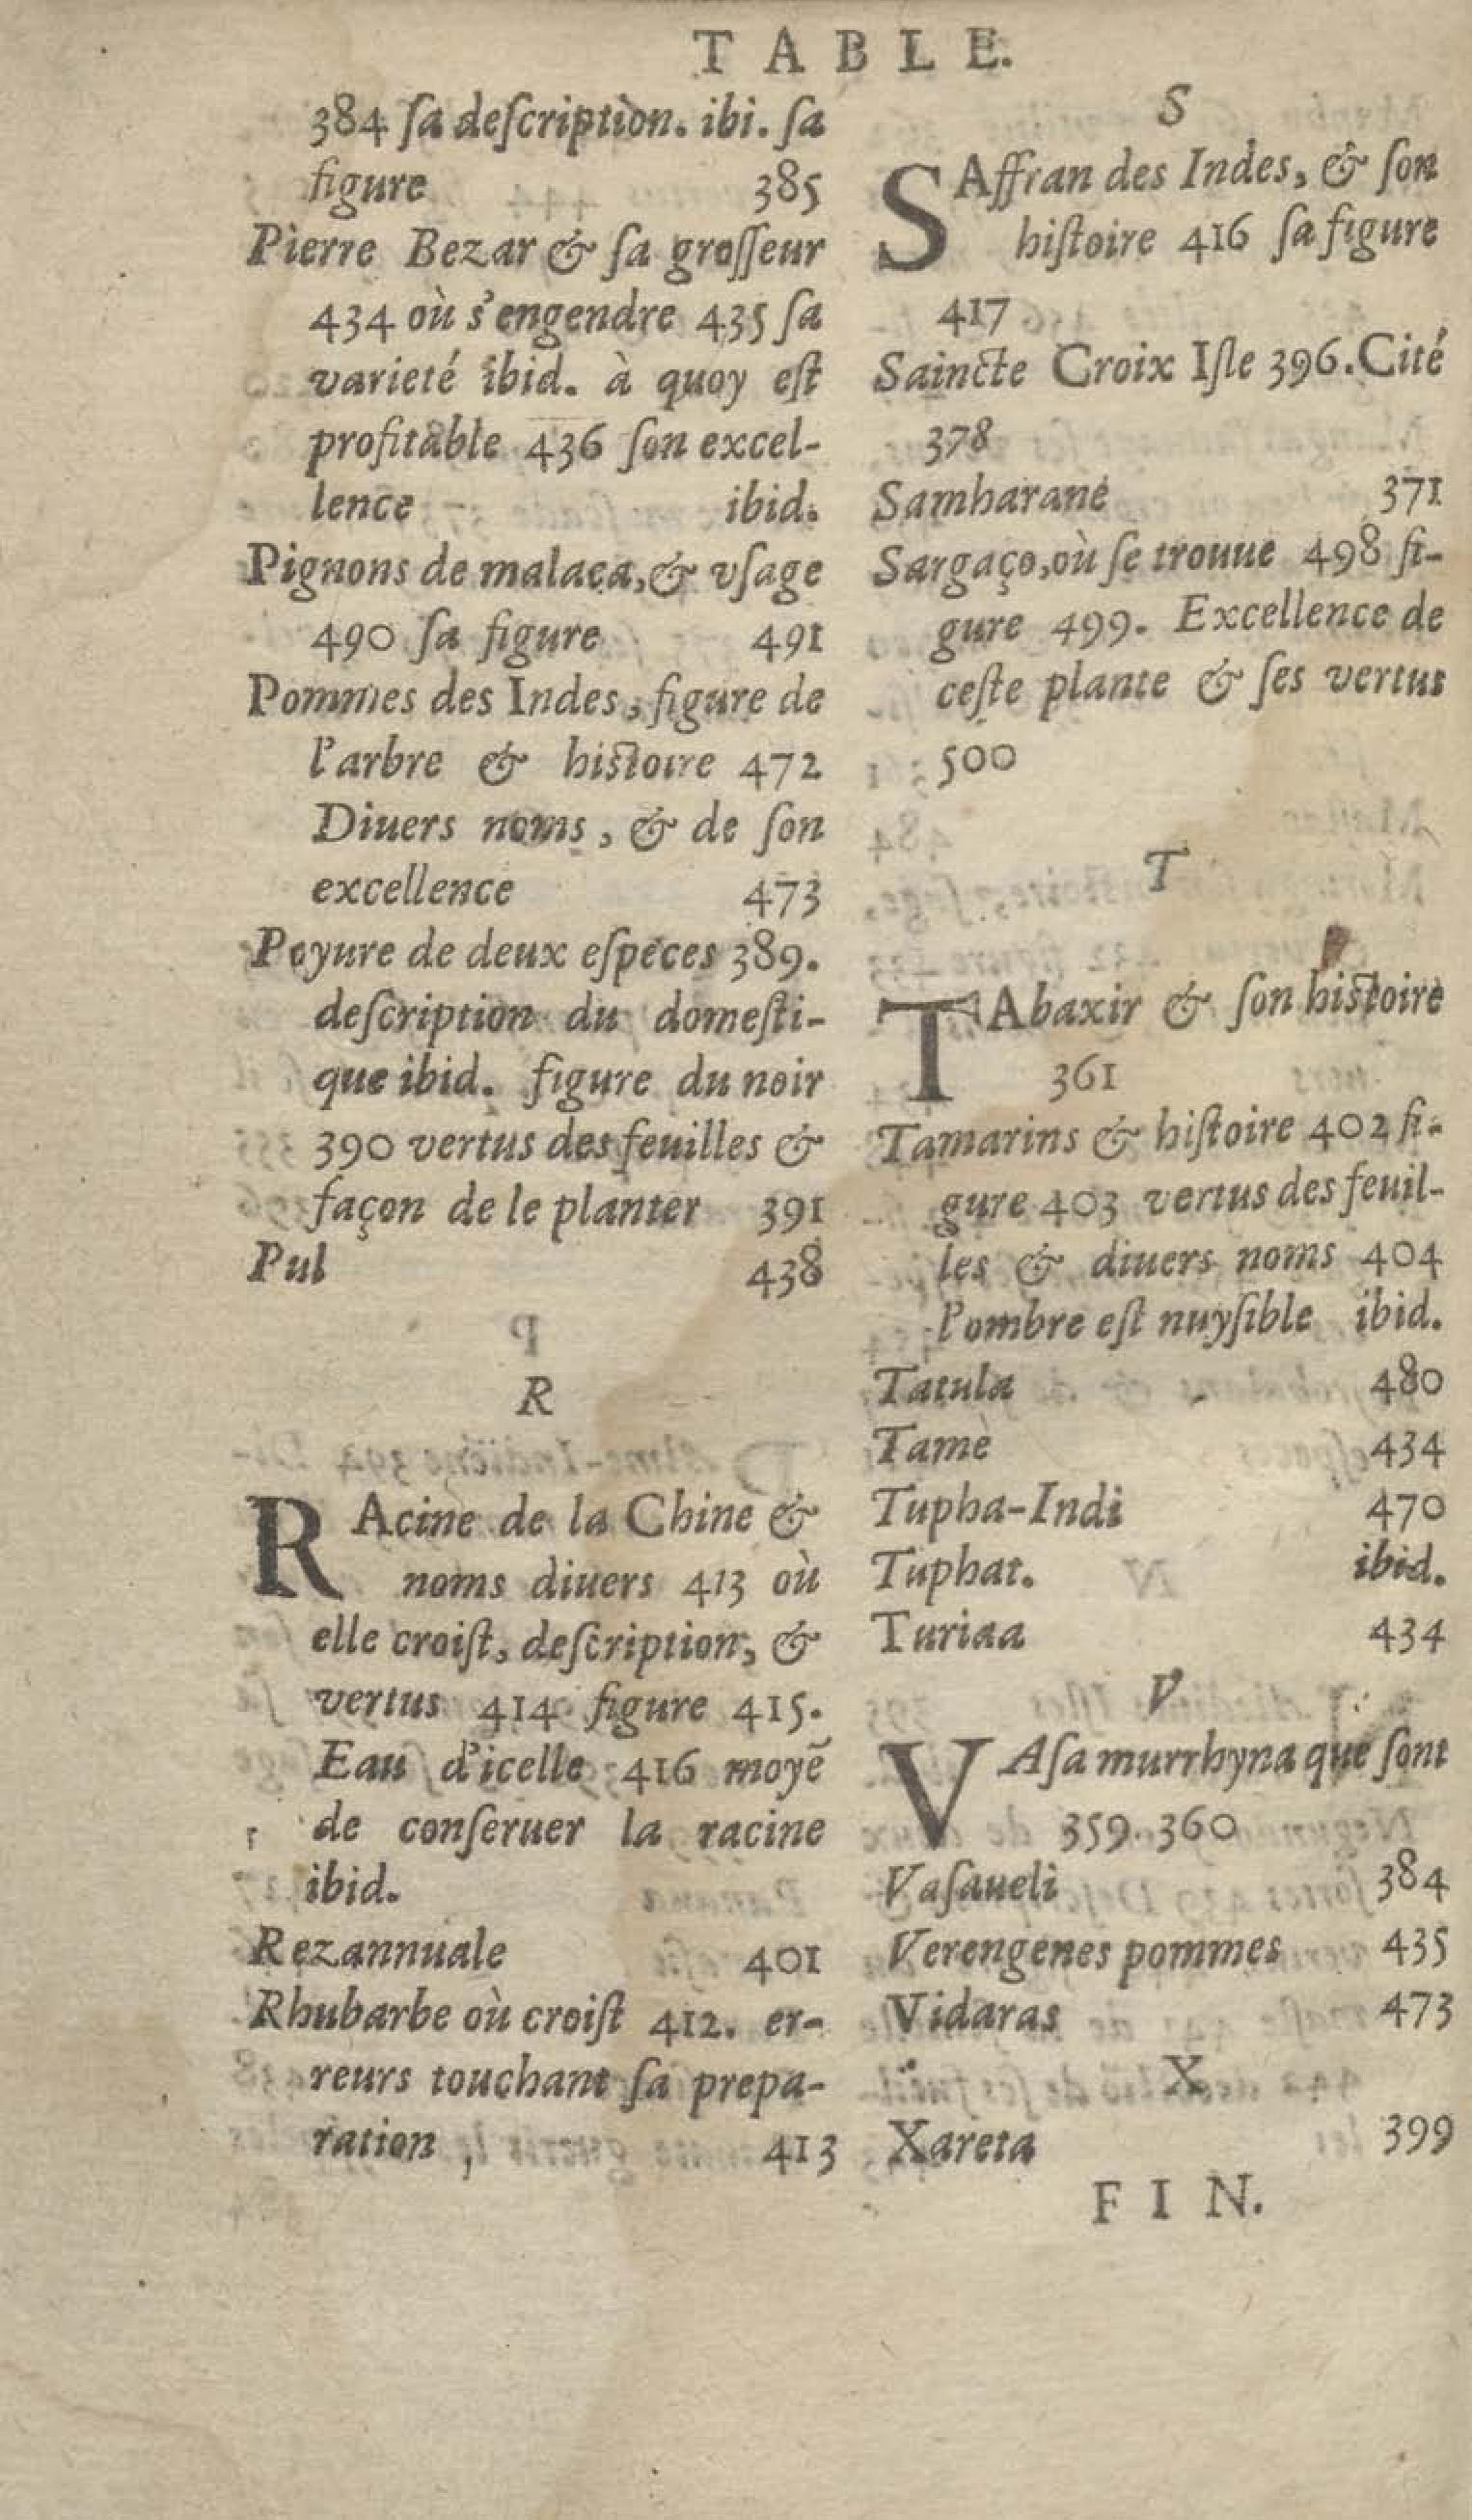 TABLE.
384 ſa deſcription. ibi. ſa
figure 385
Pierre Bezar & ſa groſſeur
434 où s'engendre 435 ſa
varieté ibid. à quoy eſt
profitable 436 ſon excel-
lence ibid.
Pignons de malaca, & vſage
490 ſa figure 491
Pommes des Indes, figure de
l'arbre & histoire 472
Diuers noms, & de ſon
excellence 473
Poyure de deux eſpeces 389.
deſcription du domeſti-
que ibid. figure du noir
390 vertus des feuilles &
façon de le planter 391
Pul 438
R
RAcine de la Chine &
noms diuers 413 où
elle croiſt, deſcription, &
vertus 414 figure 415.
Eau d'icelle 416 moyẽ
de conſeruer la racine
ibid.
Rezannuale 401
Rhubarbe où croiſt 412. er-
reurs touchant ſa prepa-
ration, 413
S
SAffran des Indes, & ſon
hiſtoire 416 ſa figure
417
Saincte Croix Iſle 396. Cité
378
Samharane 371
Sargaço, où ſe trouue 498 fi-
gure 499. Excellence de
ceſte plante & ſes vertus
500
T
TAbaxir & ſon histoire
361
Tamarins & hiſtoire 402 fi-
gure 403 vertus des feuil-
les & diuers noms 404
l'ombre eſt nuyſible ibid.
Tatula 480
Tamé 434
Tupha-Indi 470
Tuphat. ibid.
Turiaa 434
V
VAſa murrhyna que ſont
359. 360
Vaſaueli 384
Verengenes pommes 435
Vidaras 473
X
Xareta 399
FIN.